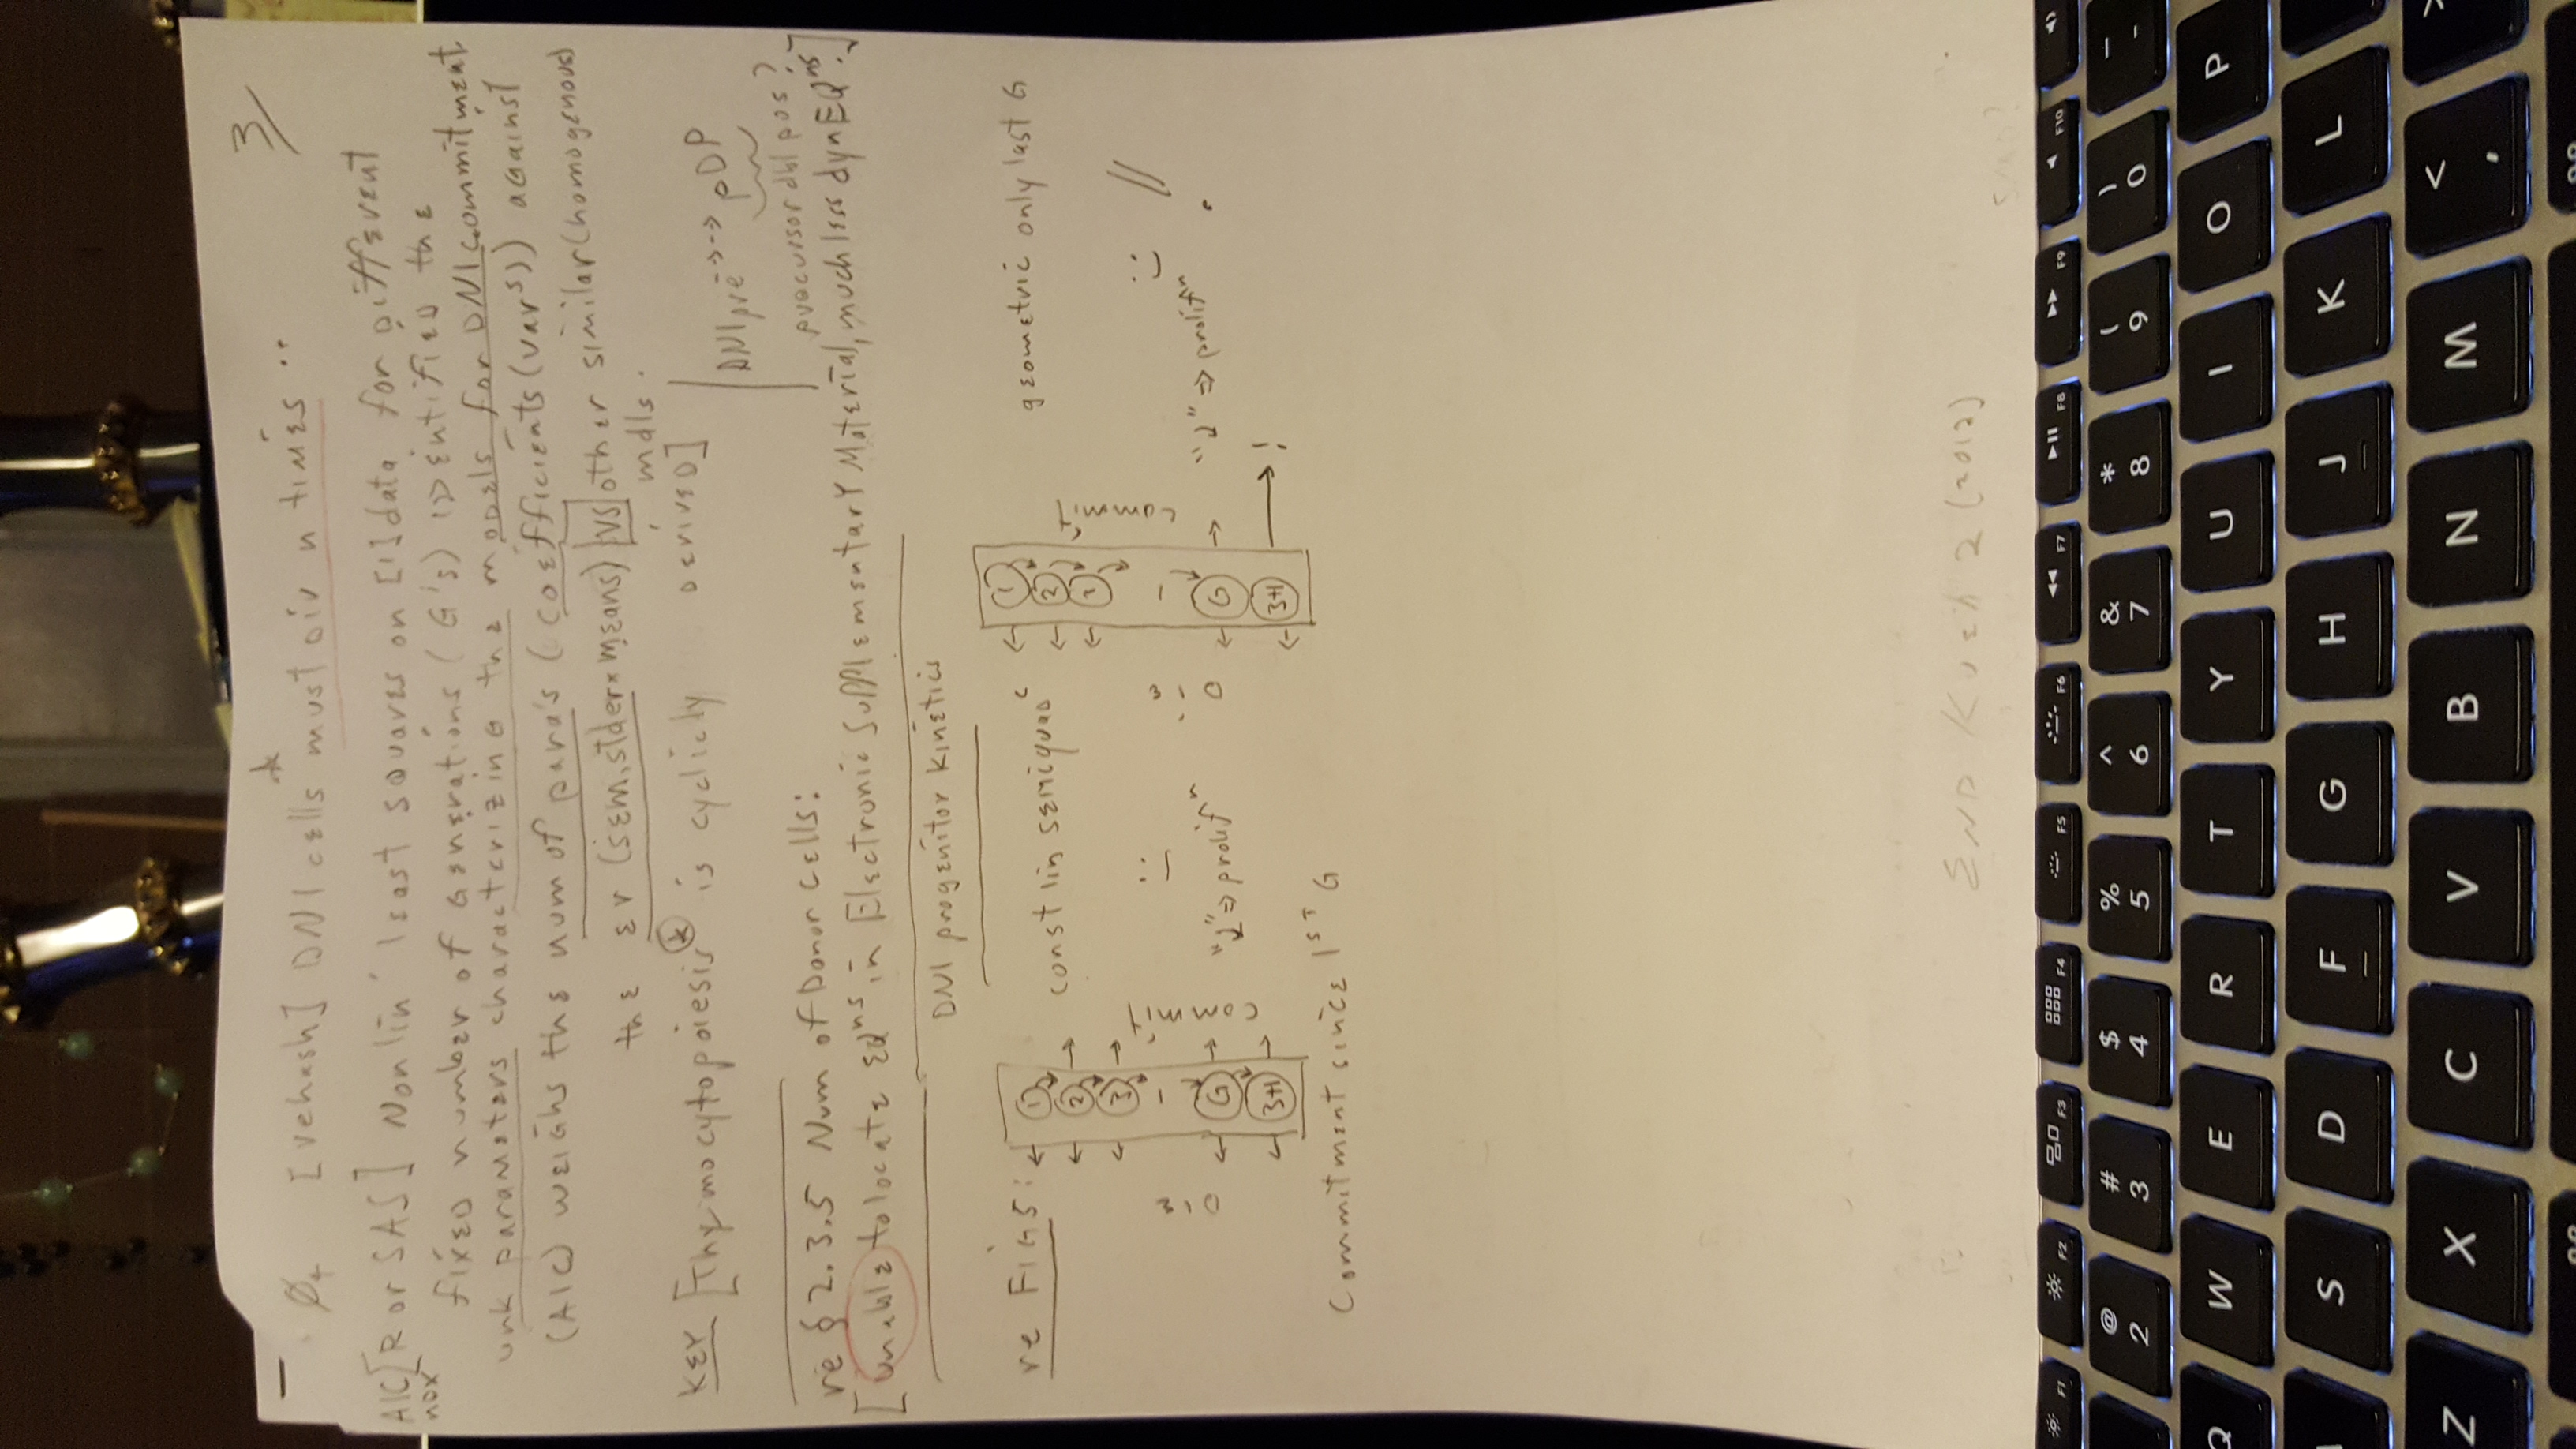 3/
[rehash] DN1 cells must div n times ..
AIC [R or SAS] Nonlin' least squares on [1] data for different
ndx
fixed number of Generations (G's) identified the
unk parameters characterizing the models for DN1 commitment
(AIC) weighs the num of para's (coefficients (var^s)) against
the er (sem, stder × means) VS other similar (homogenous)
mdls.
KEY [Thymocytopoiesis* is cyclicly derived]
DN1 pre --> --> pDP
precursor dbl pos?
re § 2.3.5 Num of Donor cells:
[unable to locate EQ^ns in Electronic Supplementary Material, much less dyn EQ^ns.]
DN1 progenitor kinetics
re FIG 5:
const lin semiquad^c
geometric only last G
1
2
3
G
3+1
die
commit
"↓" ⇒ prolif^n
1
2
G
3+1
die
commit
!
"↓" ⇒ prolif^n
Commitment since 1ST G
END Kueh 2 (2012)
F1
F2
F3
F4
F5
F6
F7
F8
F9
F10
@ # $ % ^ & * ( ) _
2 3 4 5 6 7 8 9 0 -
Q W E R T Y U I O P
S D F G H J K L
Z X C V B N M < ,